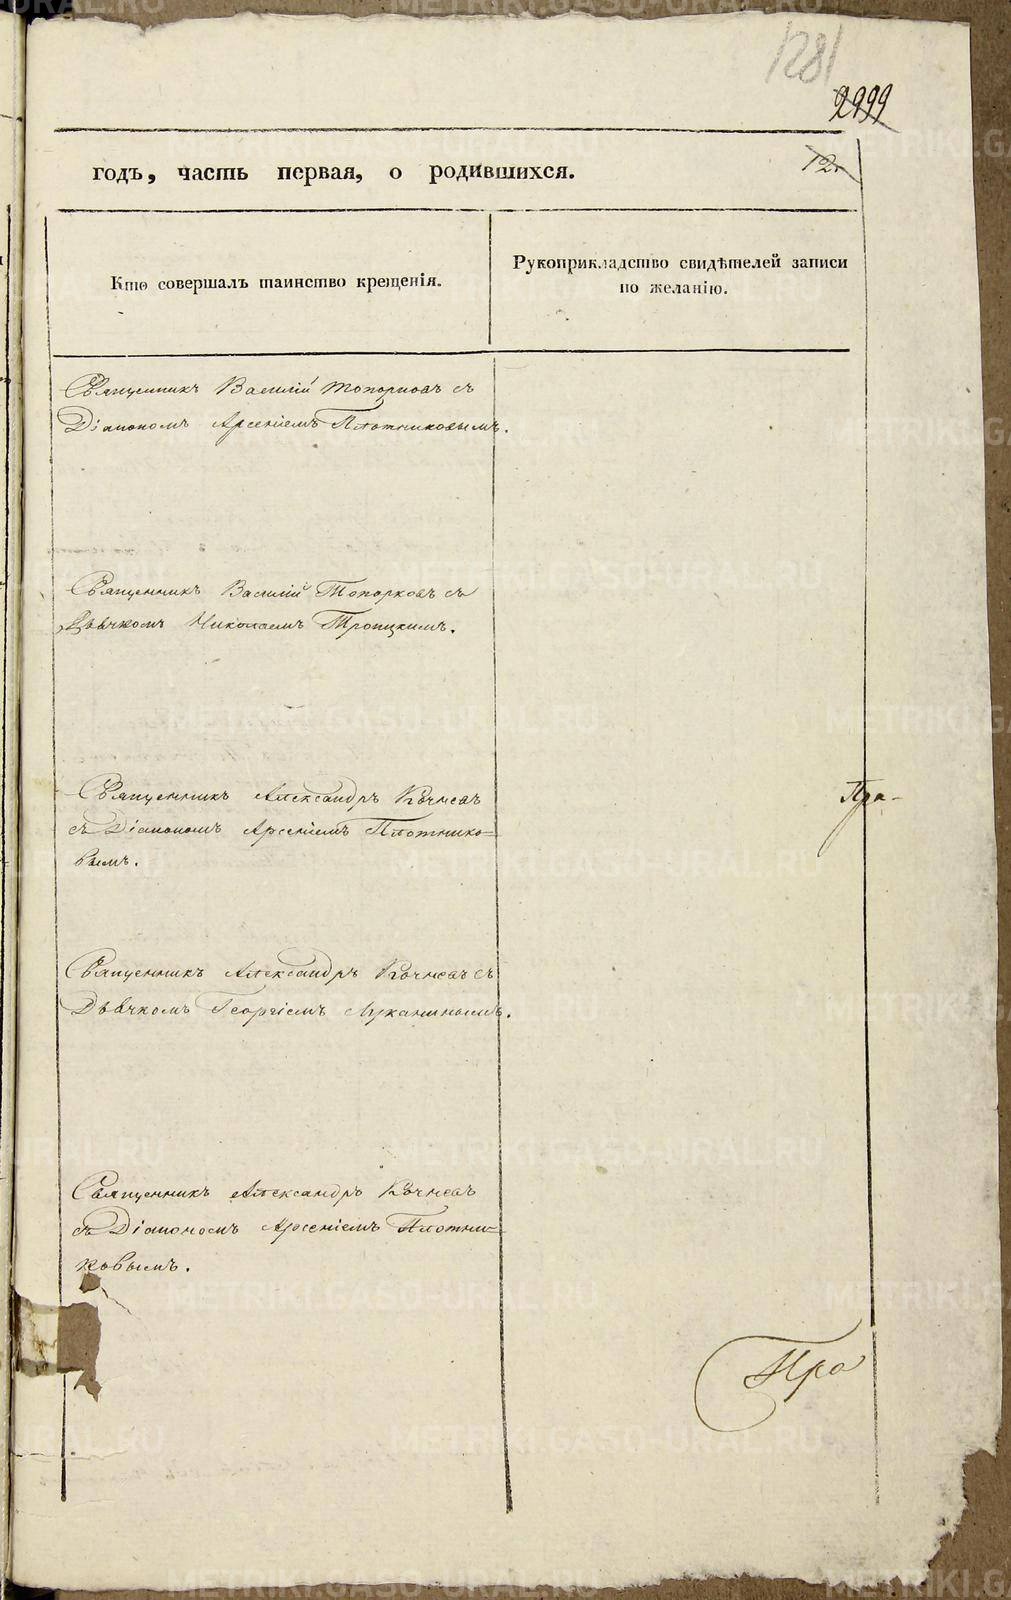 1281
2999
12.
годъ, часть первая, о родившихся.
Кто совершалъ таинство крещенія.
Рукоприкладство свидѣтелей записи
по желанію.
Священникъ Василій Топорковъ съ
Діакономъ Арсеніемъ Плотниковымъ.
Священникъ Василій Топорковъ съ
Дьячкомъ Николаемъ Троицкимъ.
Священникъ Александръ Кочневъ
съ Діакономъ Арсеніемъ Плотнико=
вымъ.
Пра-
Священникъ Александръ Кочневъ съ
Дьячкомъ Георгіемъ Луканинымъ.
Священникъ Александръ Кочневъ
съ Діакономъ Арсеніемъ Плотни=
ковымъ.
Про
METRIKI.GASO-URAL.RU